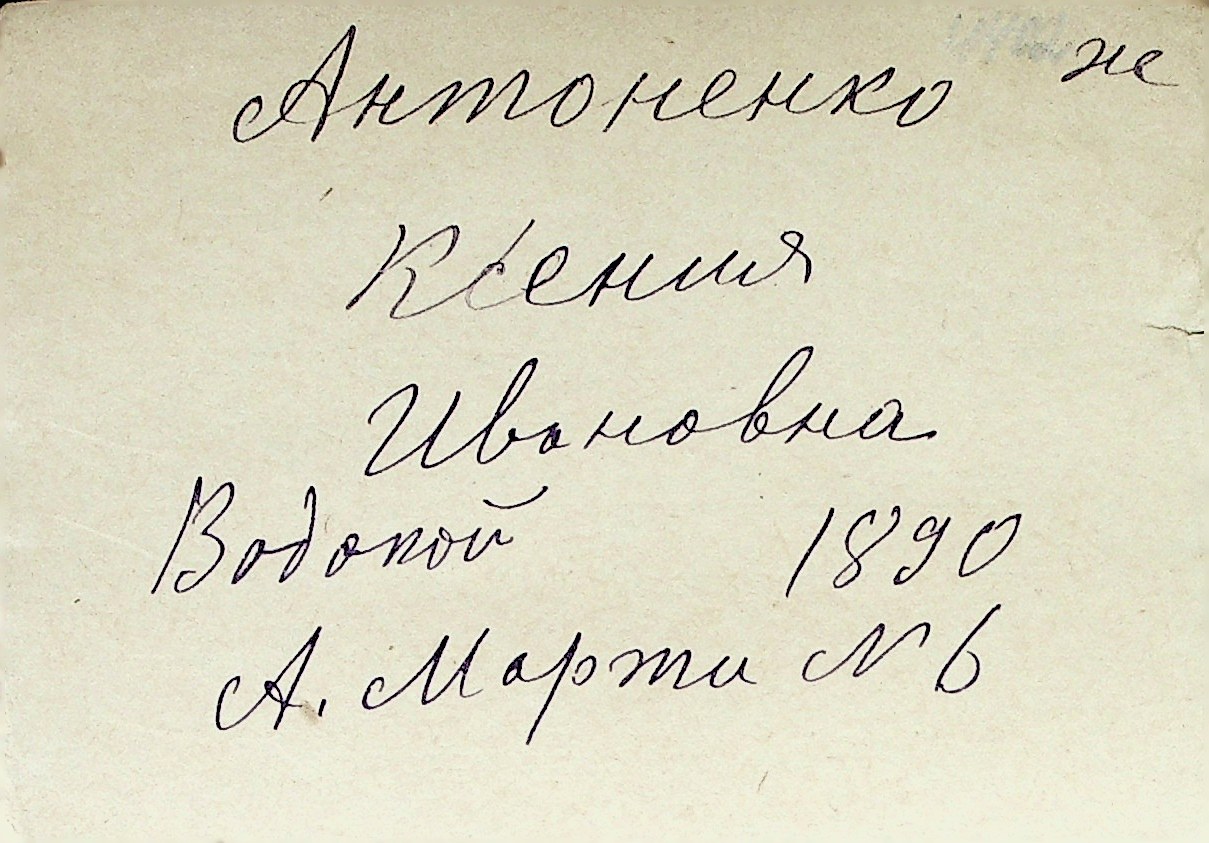 Антоненко ж
Ксения
Ивановна
Водопой 1890
А. Марти № 6